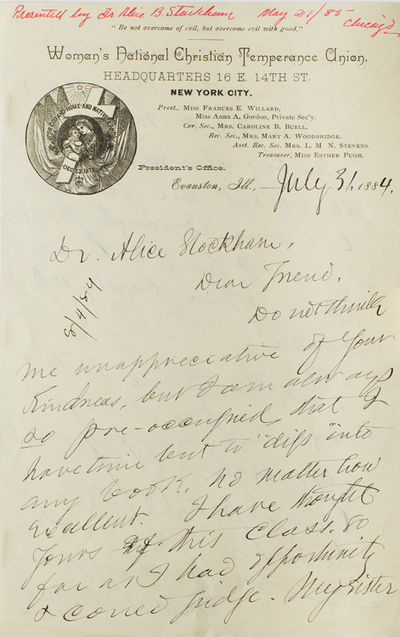 Presented by Dr Alice B. Stockham, May 21/85
Chicago
"Be not overcome of evil, but overcome evil with good."
Woman's National Christian Temperance Union.
HEADQUARTERS 16 E. 14TH ST.
NEW YORK CITY.
Prest., MISS FRANCES E. WILLARD,
MISS ANNA A. GORDON, Private Sec'y.
Cor. Sec., MRS. CAROLINE B. BUELL,
Rec. Sec., MRS. MARY A. WOODBRIDGE.
Asst. Rec. Sec. MRS. L. M N. STEVENS.
Treasurer, MISS ESTHER PUGH.
FOR GOD AND HOME AND NATIVE LAND
President's Office.
Evanston, Ill., July 31, 1884.
Dr. Alice Stockham,
8/4/84
Dear Friend,
Do not think
me unappreciative of your
Kindness, but I am always
so pre-occupied, that I
have time but to "dip" into
any book, no matter how
excellent. I have thought
yours of this class, so
far as I had opportunity
& could judge. My sister